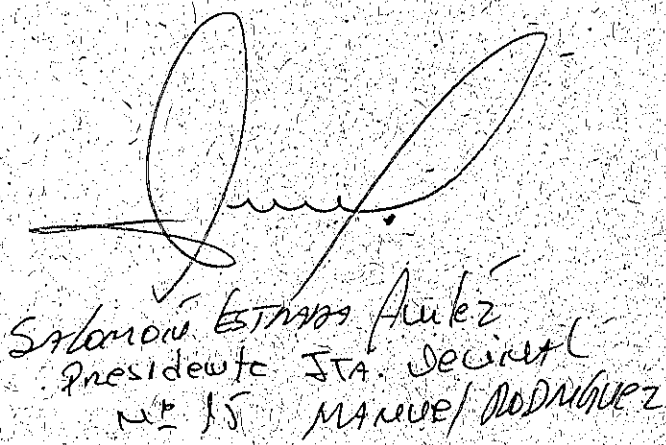 Salomón ESTRADA
Presidente JTA. Vecinal
Nº 15 MANUEL RODRIGUEZ